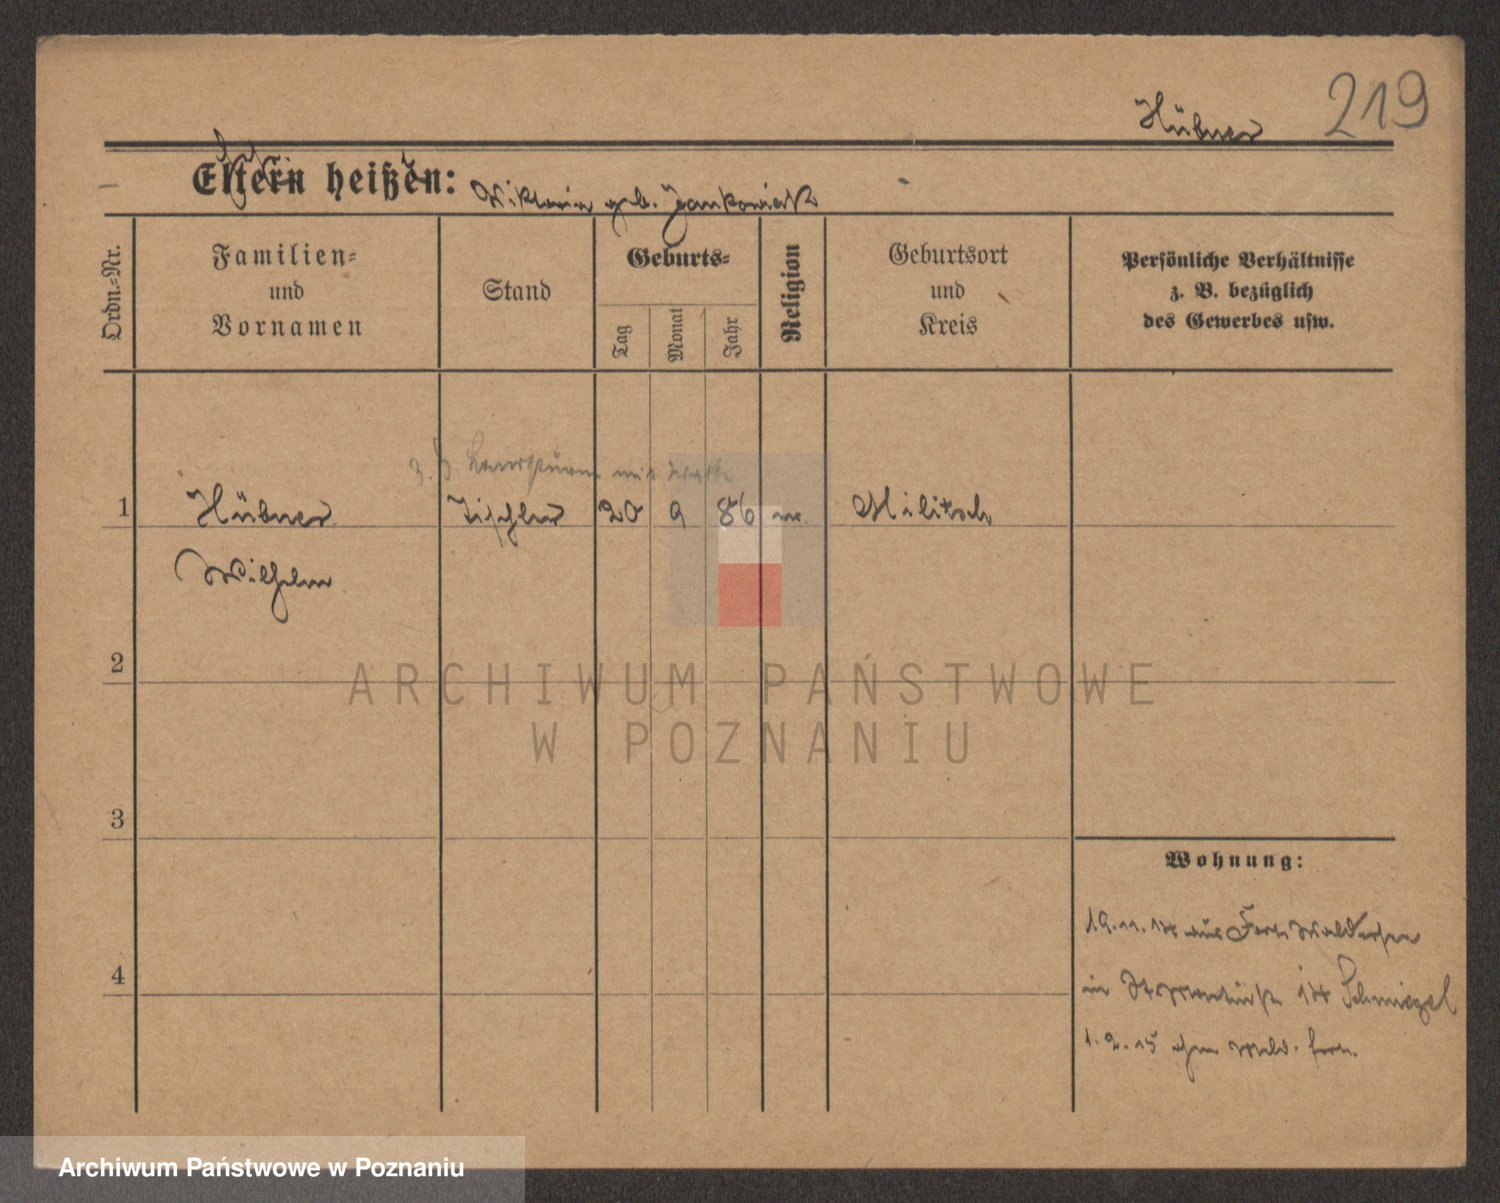 219
Hübner
Eltern heißen: Viktoria geb. Jankowiak
Ordn.-Nr.
Familien-
und
Vornamen
Stand
Geburts-
Tag
Monat
Jahr
Religion
Geburtsort
und
Kreis
Persönliche Verhältnisse
z. B. bezüglich
des Gewerbes usw.
1
Hübner Tischler 20 9 86 Militsch
Wilhelm
2
3
4
Wohnung:
19.11.14 aus Fort Waldersee
in 14 Schmiegel
1.2.15
ARCHIWUM PAŃSTWOWE
W POZNANIU
Archiwum Państwowe w Poznaniu